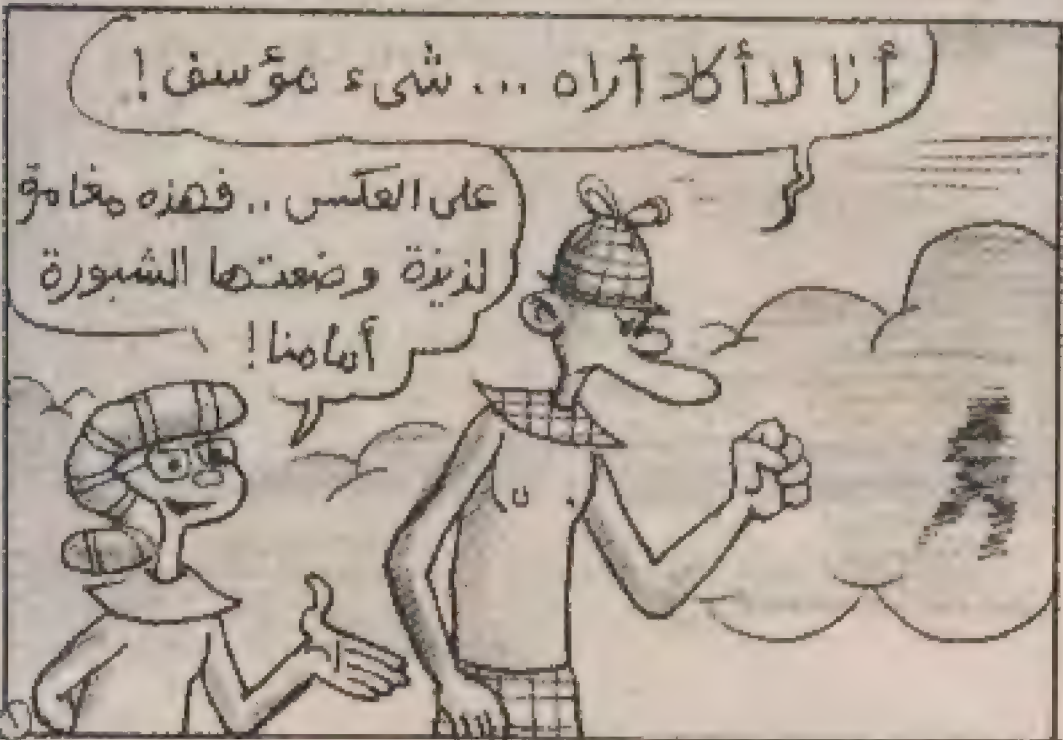 أنا لا أكاد أراه ... شىء مؤسف !
على العكس .. فهذه مغامرة
لذيذة وضعتها الشبورة
أمامنا !